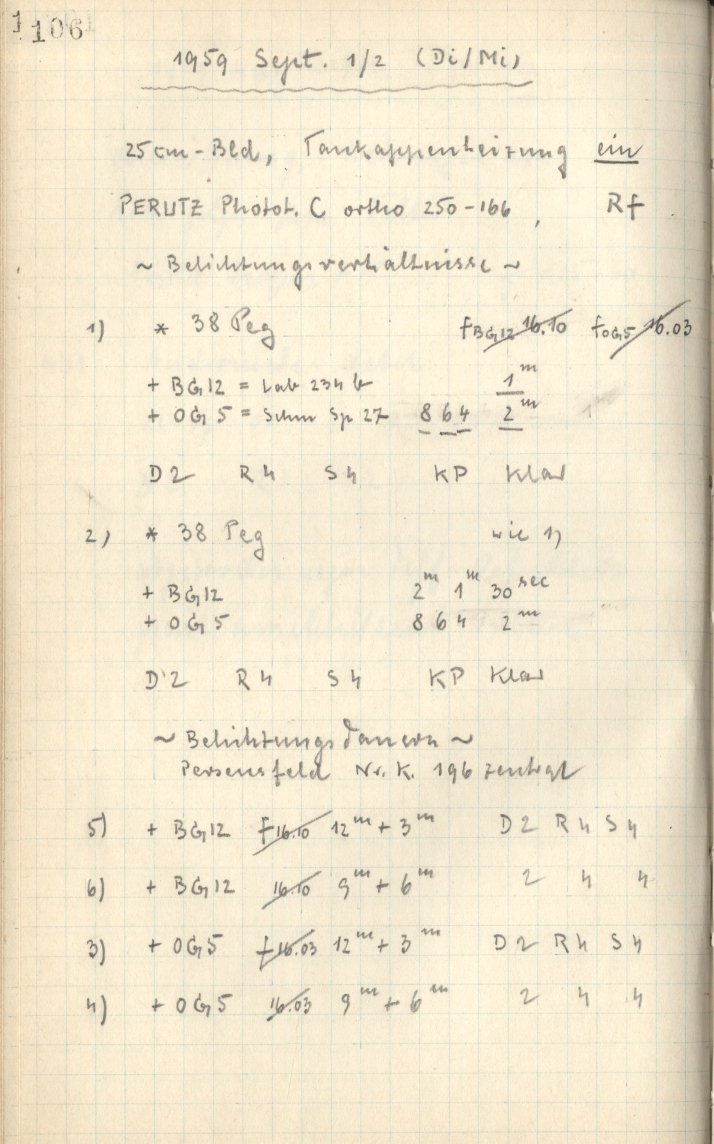 106
1959 Sept. 1/2 (Di/Mi)
25cm-Bld, Taukappenheizung ein
PERUTZ Photot. C ortho 250-166, Rf
~ Belichtungsverhältnisse ~
1) * 38 Peg fBG12 16.10 fOG5 16.03
+ BG12 = Lab 234 b 1m
+ OG5 = Schm Sp 27 8 6 4 2m
D2 R4 S4 KP Klar
2) * 38 Peg wie 1)
+ BG12 2m 1m 30sec
+ OG5 8 6 4 2m
D2 R4 S4 KP Klar
~ Belichtungsdauern ~
Perseusfeld Nr. K. 196 zentral
5) + BG12 f16.10 12m + 3m D2 R4 S4
6) + BG12 16.10 9m + 6m 2 4 4
3) + OG5 f16.03 12m + 3m D2 R4 S4
4) + OG5 16.03 9m + 6m 2 4 4